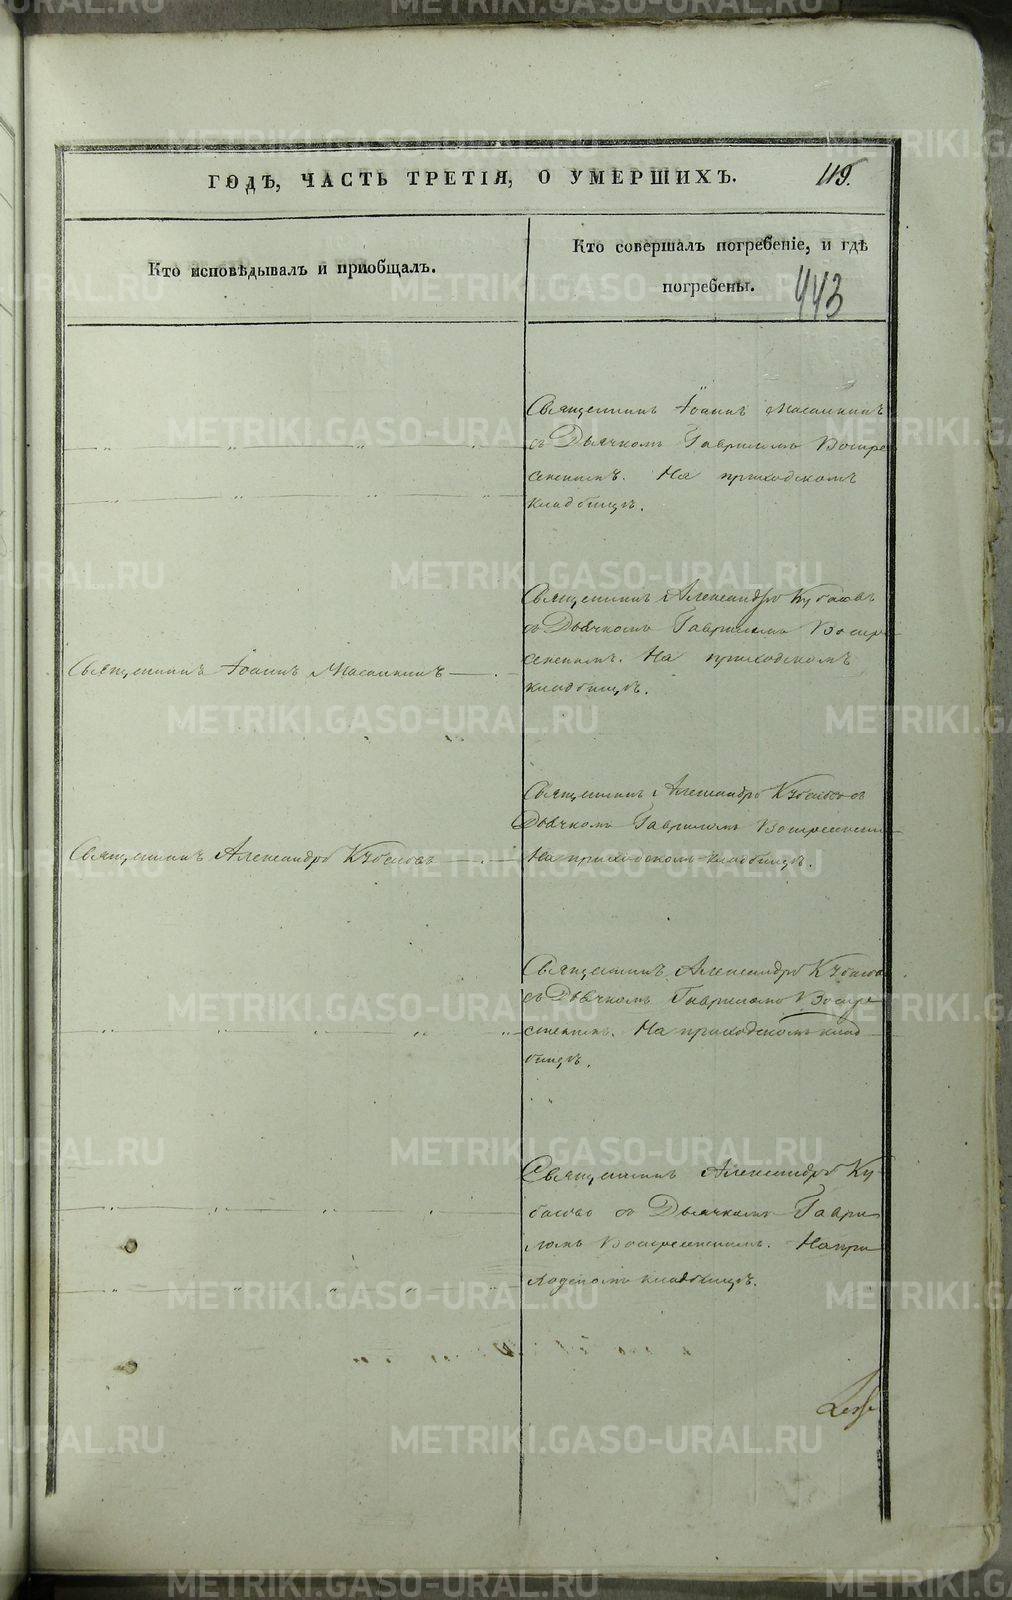 ГОДЪ, ЧАСТЬ ТРЕТІЯ, О УМЕРШИХЪ.
115.
Кто исповѣдывалъ и пріобщалъ.
Кто совершалъ погребеніе, и гдѣ
погребены.
443
Священникъ Іоаннъ
съ Дьячкомъ Гавриломъ Воскре
сенскимъ. На приходскомъ
кладбищѣ.
Священникъ Александръ Кубасовъ
съ Дьячкомъ Гавриломъ Воскре
сенскимъ. На приходскомъ
кладбищѣ.
Священникъ Іоаннъ
Священникъ Александръ Кубасовъ съ
Дьячкомъ Гавриломъ Воскресенскимъ
На приходскомъ кладбищѣ.
Священникъ Александръ Кубасовъ
Священникъ Александръ Кубасовъ
съ Дьячкомъ Гавриломъ Воскре
сенскимъ. На приходскомъ клад
бищѣ.
Священникъ Александръ Ку
басовъ съ Дьячкомъ Гаври
ломъ Воскресенскимъ. На при
ходскомъ кладбищѣ.
METRIKI.GASO-URAL.RU